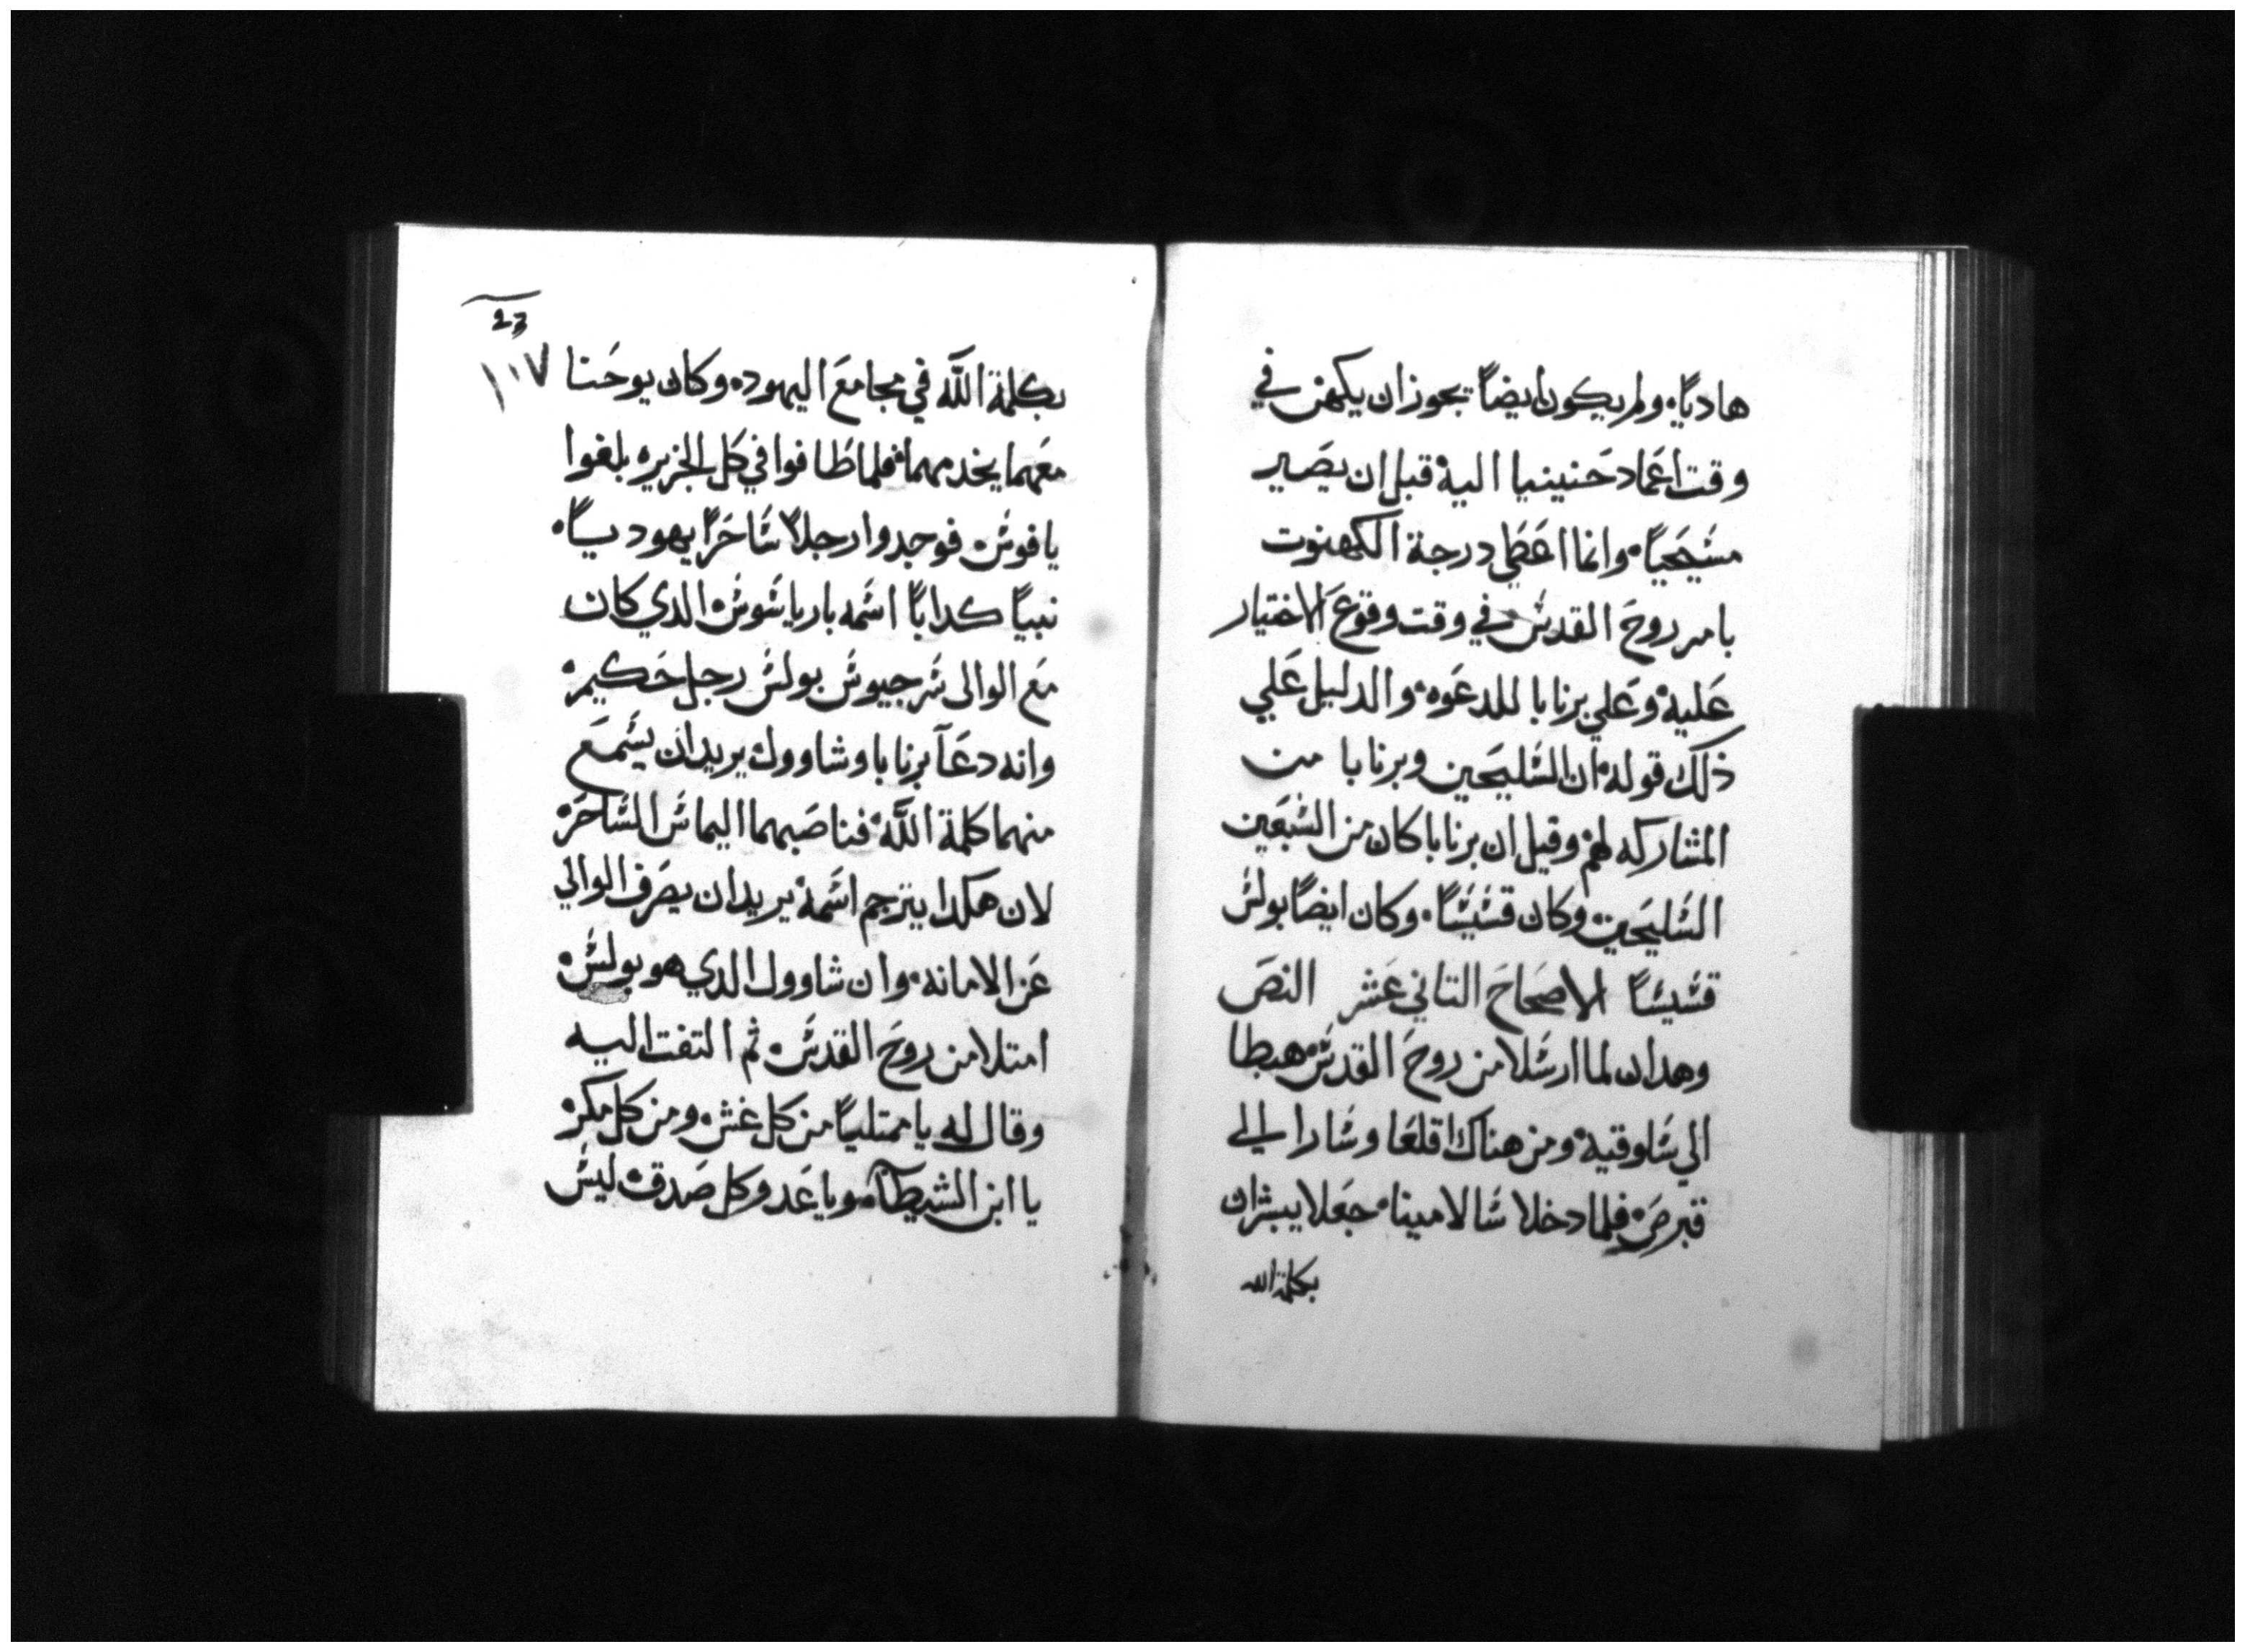 هاديًا، ولم يكون ايضًا يجوز ان يكهن في
وقت اعماد حنينيا اليه قبل ان يصير
مسيحيًا، وانما اعطي درجة الكهنوت
بامر روح القدس، في وقت وقوع الاختيار
عليه، وعلي برنابا للدعوه، والدليل علي
ذلك قوله، ان السليحين وبرنابا من
المشاركه لهم، وقيل ان برنابا كان من السبعين
السليحين، وكان قسيسًا، وكان ايضًا بولس
قسيسًا الاصحاح التاني عشر النص
وهدان لما ارسلا من روح القدس، هبطا
الي ساوقيه، ومن هناك اقلعا وسارا الي
قبرص، فلما دخلا سالامينا، جعلا يبشران
بكلمة الله
23
١٠٧
بكلمة اللّه في مجامع اليهود، وكان يوحنا
معهما يخدمهما، فلما طافوا في كل الجزيره بلغوا
يافوس، فوجدوا رجلًا ساحرًا يهوديًا،
نبيًا كدابًا اسمه بارياسوس، الدي كان
مع الوالي سرجيوس بولس رجل حكيم،
وانه دعآ برنابا وشاوول، يريد ان يسمع
منهما كلمة اللّه، فناصبهما اليماس الساحر،
لان هكدا يترجم اسمه، يريد ان يصرف الوالي
عن الامانه، وان شاوول الدي هو بولس،
امتلا من روح القدس، ثم التفت اليه
وقال له يا ممتليًا من كل غش، ومن كل مكر،
يا ابن الشيطان، ويا عدو كل صدق، ليس